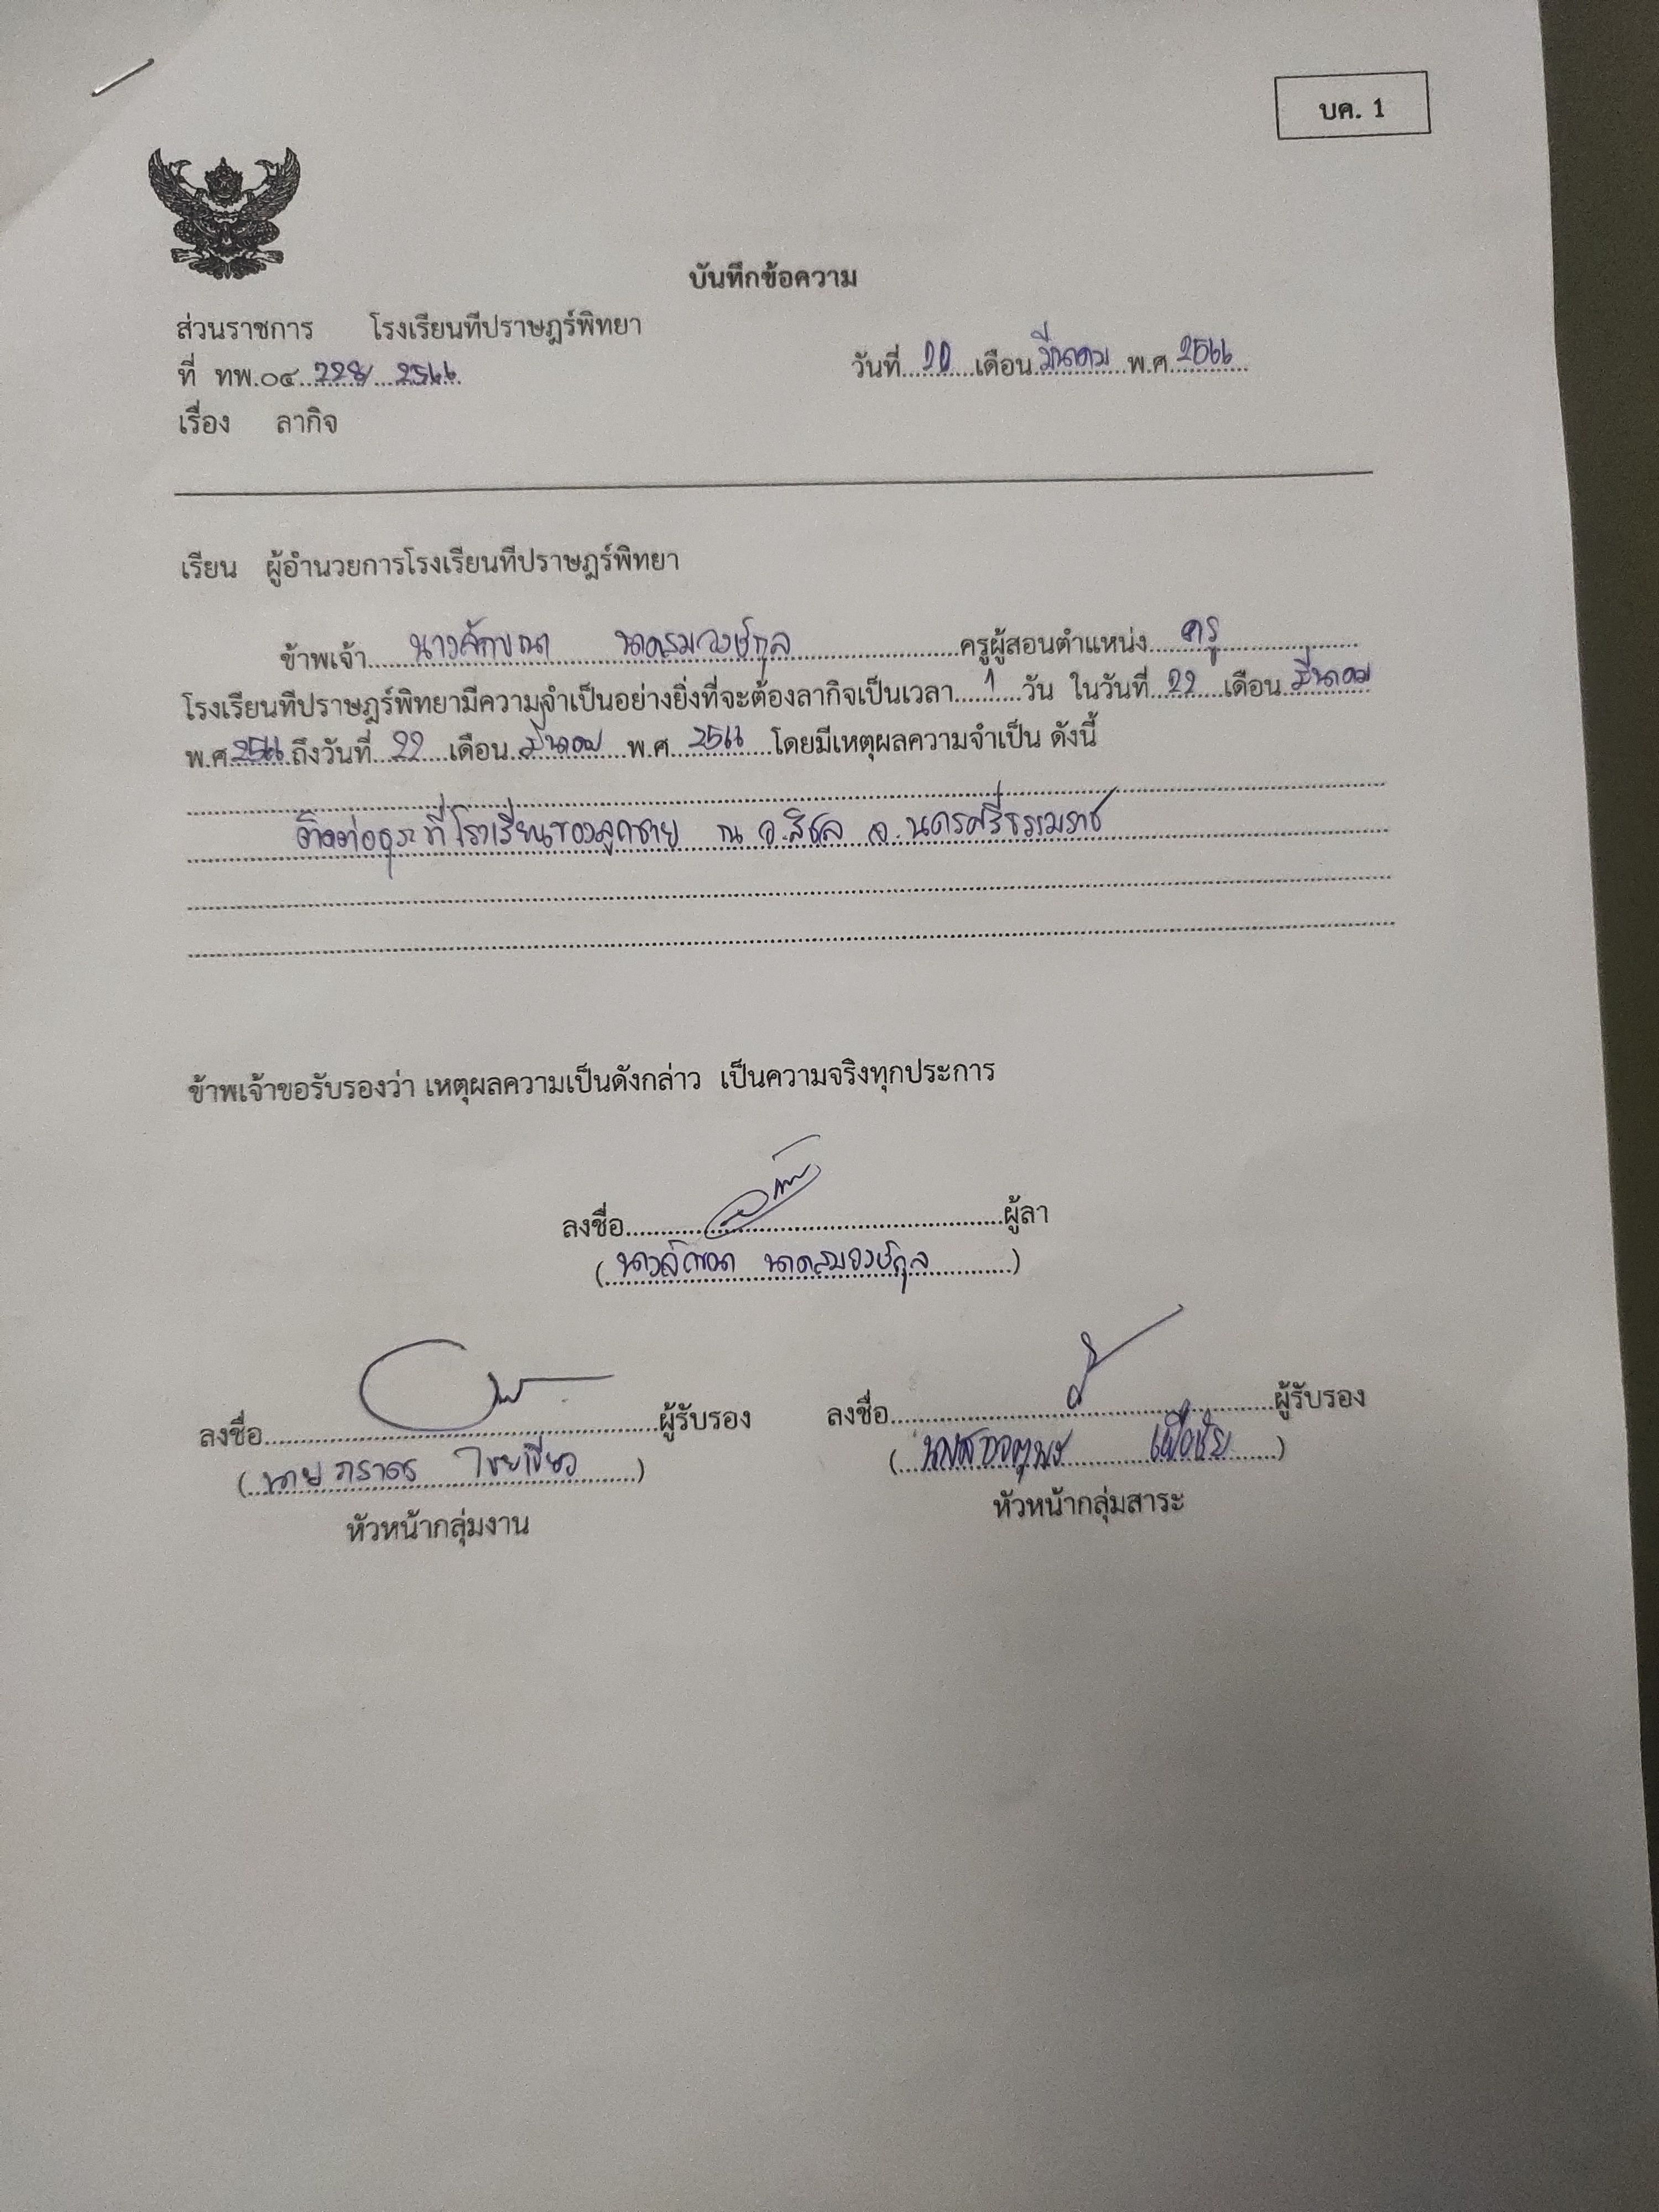 บค. 1
บันทึกข้อความ
ส่วนราชการ โรงเรียนทีปราษฎร์พิทยา
ที่ ทพ.๐๔ 228/ 2566 วันที่ 20 เดือน มีนาคม พ.ศ. 2566
เรื่อง ลากิจ
เรียน ผู้อำนวยการโรงเรียนทีปราษฎร์พิทยา
ข้าพเจ้า นางลักขณา ครูผู้สอนตำแหน่ง ครู
โรงเรียนทีปราษฎร์พิทยามีความจำเป็นอย่างยิ่งที่จะต้องลากิจเป็นเวลา 1 วัน ในวันที่ 22 เดือน มีนาคม
พ.ศ. 2566 ถึงวันที่ 22 เดือน มีนาคม พ.ศ. 2566 โดยมีเหตุผลความจำเป็น ดังนี้
ติดต่อธุระที่โรงเรียนของลูกชาย ณ อ.สิชล จ.นครศรีธรรมราช
ข้าพเจ้าขอรับรองว่า เหตุผลความเป็นดังกล่าว เป็นความจริงทุกประการ
ลงชื่อ ผู้ลา
( นางลักขณา )
ลงชื่อ ผู้รับรอง ลงชื่อ ผู้รับรอง
( นาย ภราดร ) ( )
หัวหน้ากลุ่มงาน หัวหน้ากลุ่มสาระ